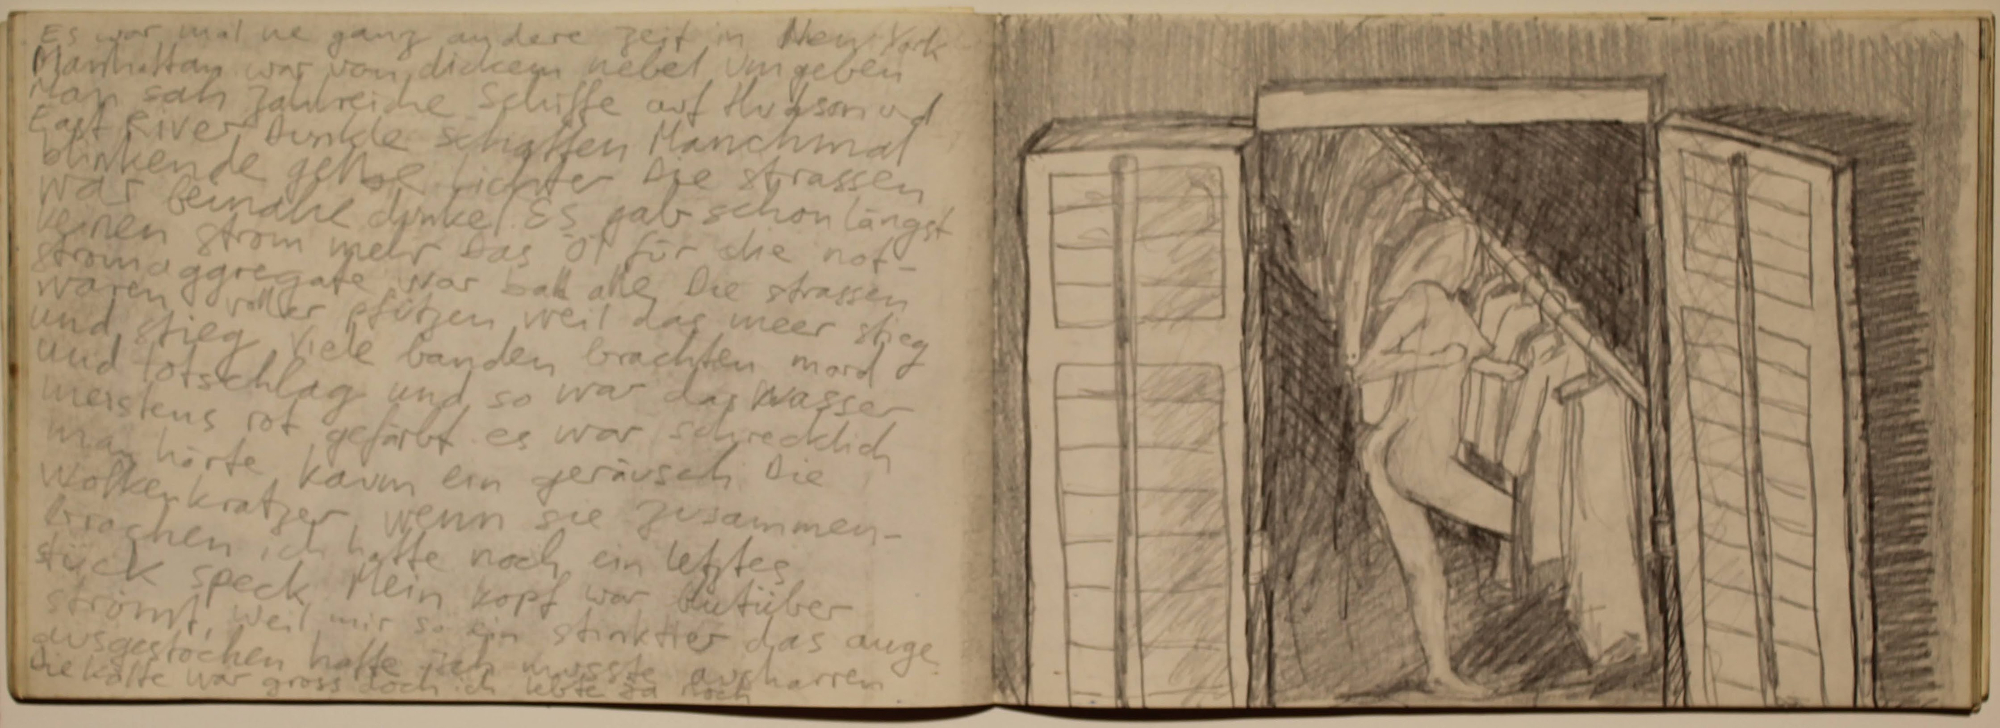 Es war mal ne ganz andere zeit in New York
Manhattan war von dickem nebel umgeben
Man sah zahlreiche Schiffe auf Hudson und
East River Dunkle schatten Manchmal
blinkende gelbe lichter Die strassen
war beinahe dunkel Es gab schon längst
keinen strom mehr Das öl für die not-
stromaggregate war bald alle Die strassen
waren voller pfützen weil das meer stieg
und stieg Viele banden brachten mord
und totschlag und so war das wasser
meistens rot gefärbt es war schrecklich
man hörte kaum ein geräusch Die
Wolkenkratzer, wenn sie zusammen-
brachen, ich hatte noch ein letztes
stück speck Mein kopf war blutüber
strömt, weil mir so ein stinktier das auge
ausgestochen hatte ich musste ausharren
Die kälte war gross doch ich lebte ja noch